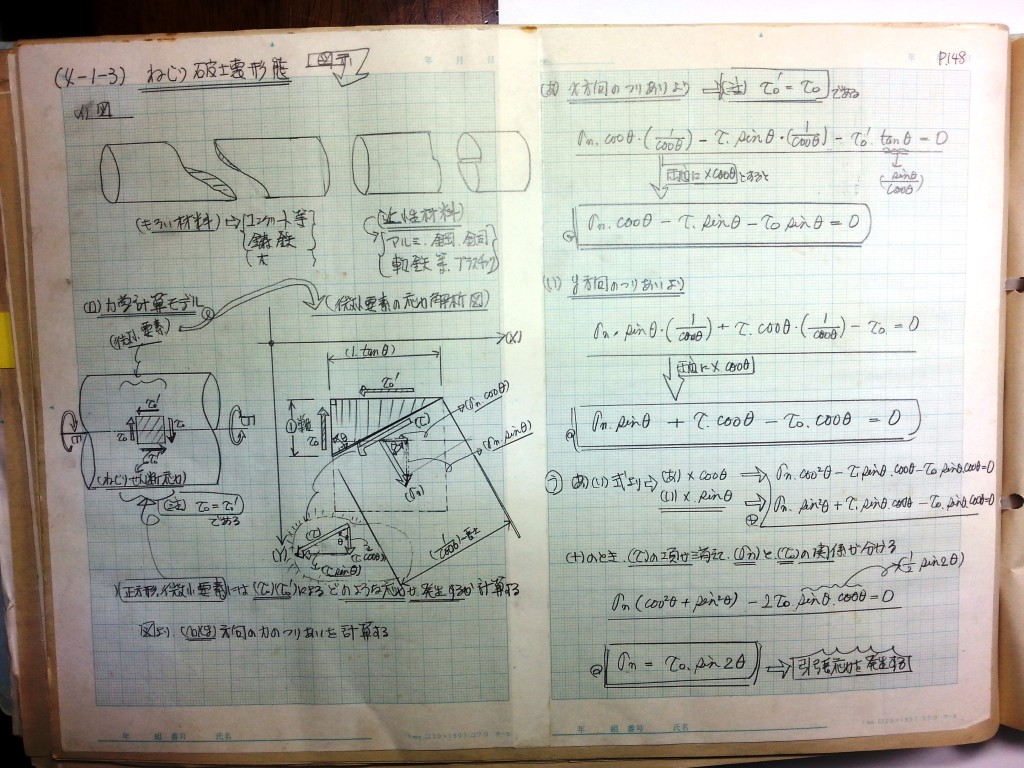 (4-1-3) ねじり破壊形態 図示
(イ)図
(もろい材料)⇒
コンクリート等
鋳鉄
木
(ねばり性材料)
アルミ、鋼、銅
軟鉄等、プラスチック
(ロ)力学計算モデル
(微小要素)
(微小要素の応力解析図)
(X)
(1.tanθ)
τ₀'
(τ)
(σn cosθ)
(σn sinθ)
(σn)
τ₀
θ
(Y)
(τ cosθ)
(τ sinθ)
(1/cosθ)
(ねじりせん断応力)
(注) τ₀ = τ₀'
である
正方形、微小要素には(τ₀)(τ₀')によるどのような応力が発生するか計算する
図より、(x)(y)方向の力のつりあいを計算する
P148
(あ) x方向のつりあいより ⇒ (注) τ₀' = τ₀ である
σn.cosθ・(1/cosθ) − τ.sinθ・(1/cosθ) − τ₀'.tanθ = 0
(sinθ/cosθ)
両辺に×cosθとすると
σn.cosθ − τ.sinθ − τ₀.sinθ = 0
(い) y方向のつりあいより
σn・sinθ・(1/cosθ) + τ.cosθ・(1/cosθ) − τ₀ = 0
両辺に×cosθ
σn sinθ + τ.cosθ − τ₀.cosθ = 0
(う) (あ)(い)式より⇒ (あ)×cosθ → σn.cos²θ − τ.sinθ.cosθ − τ₀.sinθ.cosθ=0
(い)×.sinθ → σn.sin²θ + τ.sinθ cosθ − τ₀.sinθ.cosθ=0
(+)のとき、(τ)の項は消えて、(σn)と(τ₀)の関係が分かる
(×1/2 sin2θ)
σn(cos²θ + sin²θ) − 2τ₀.sinθ.cosθ = 0
σn = τ₀.sin2θ ⇒ 引張応力を発生する
年 組 番号 氏名
年 組 番号 氏名